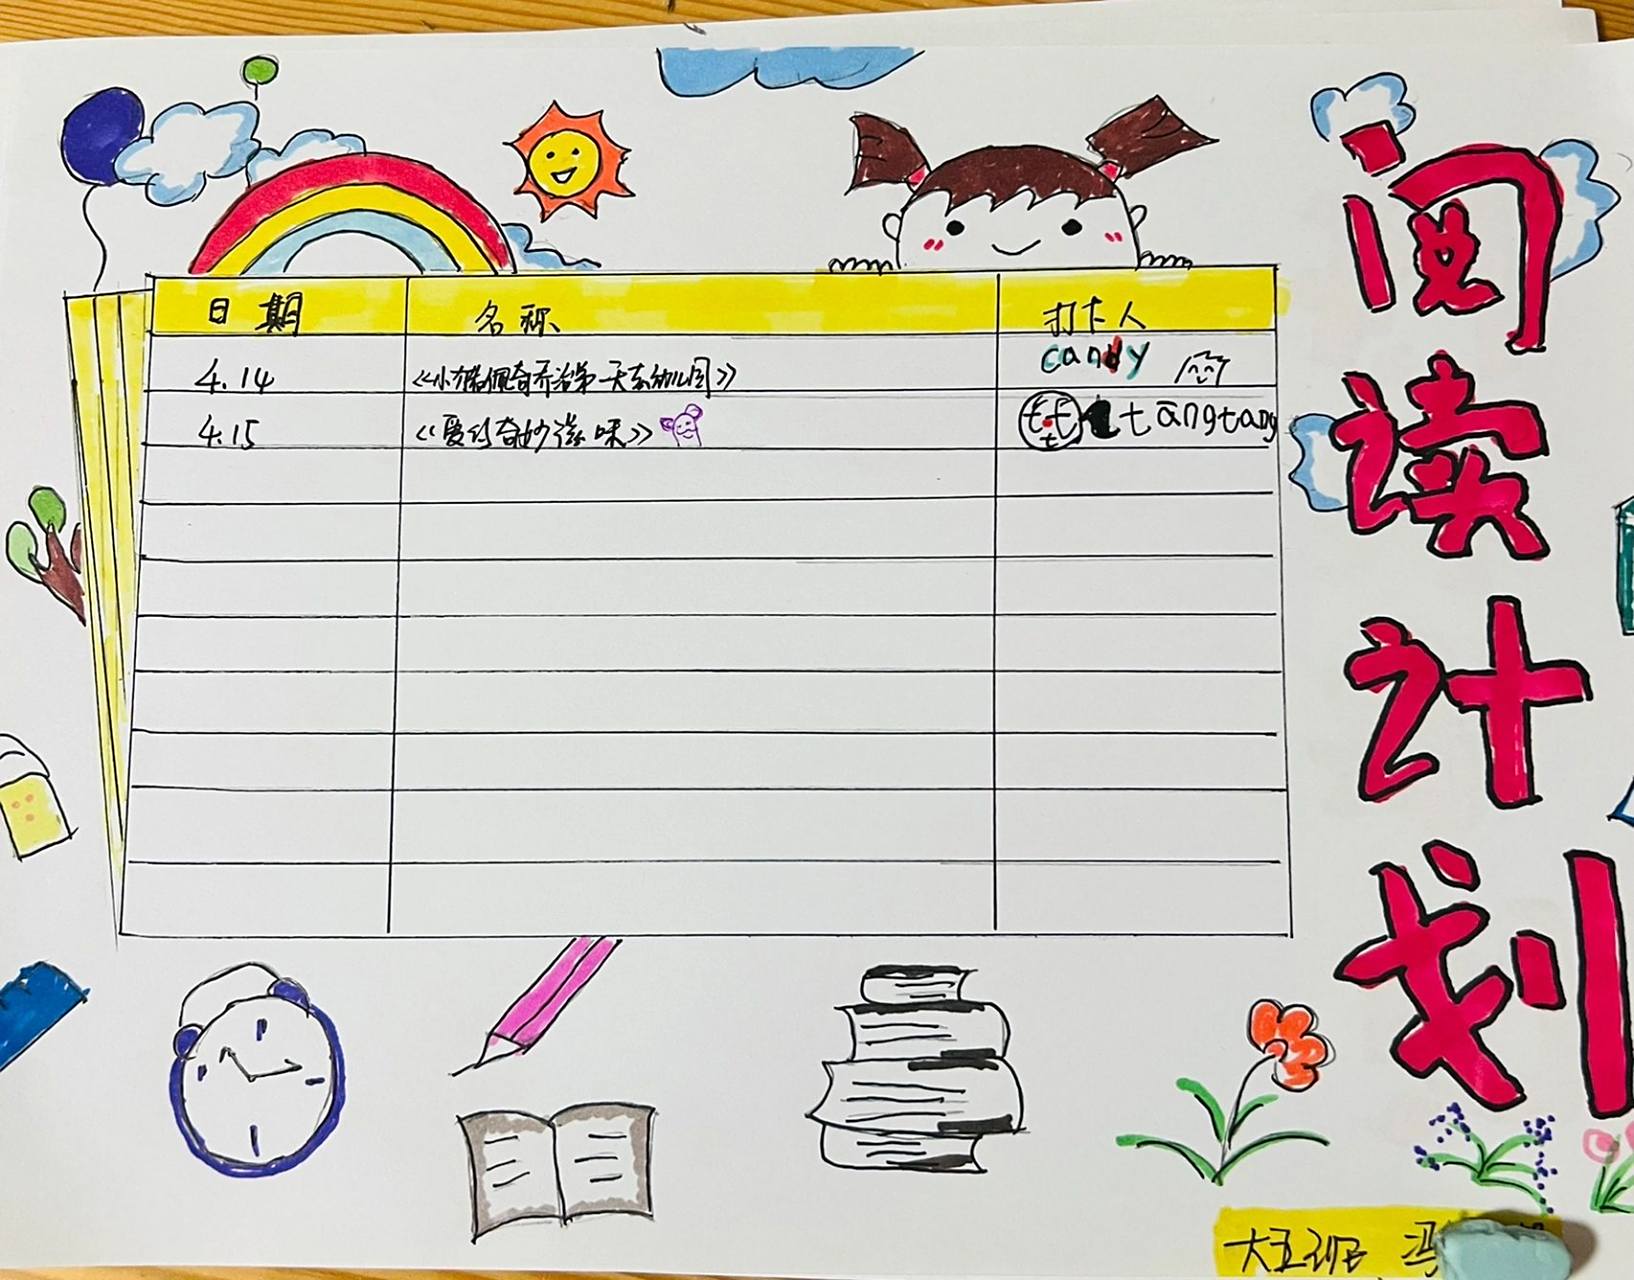 阅读计划
日期 名称 打卡人
4.14 《小猪佩奇乔治第一天去幼儿园》 candy
4.15 《爱的奇妙滋味》 tāngtang
大五班 冯